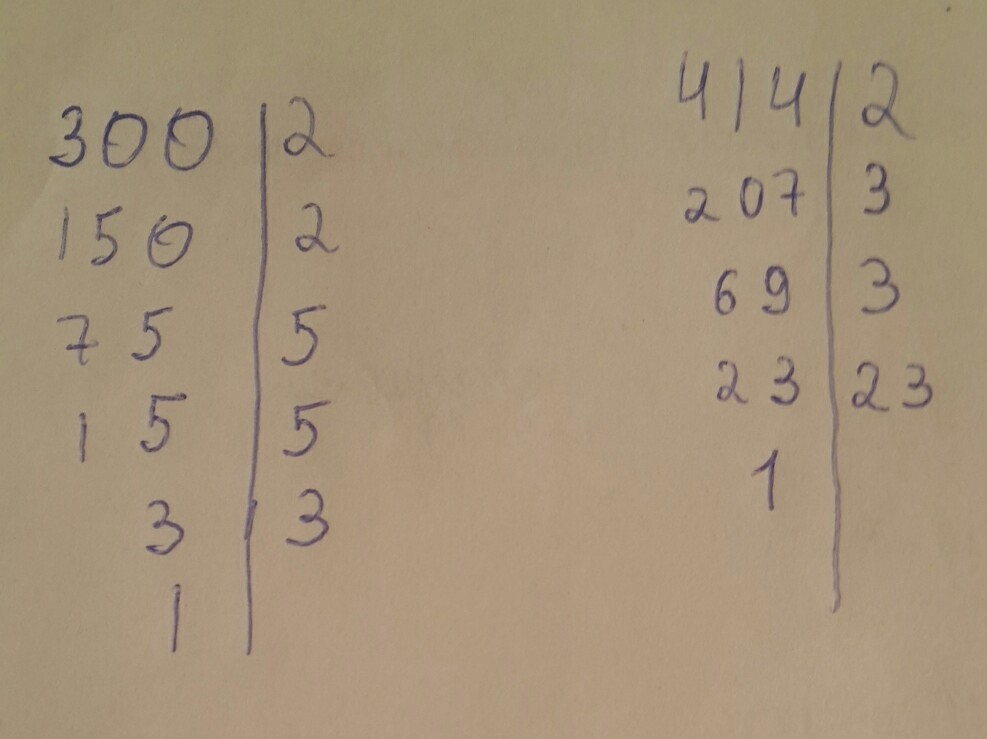 300 | 2
150 | 2
75 | 5
15 | 5
3 | 3
1 |
414 | 2
207 | 3
69 | 3
23 | 23
1 |